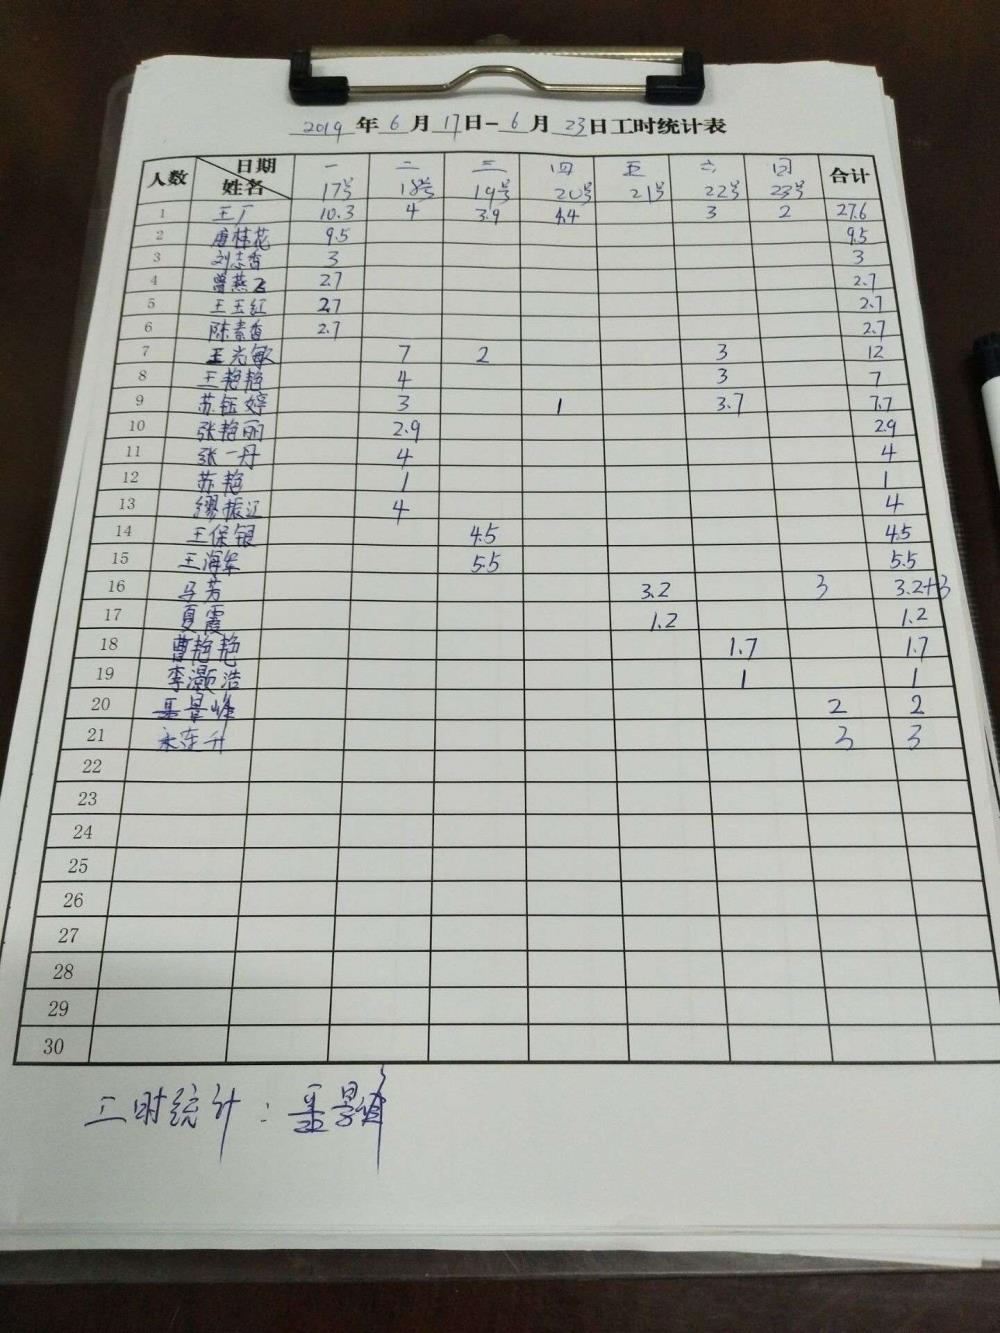 2019年6月17日-6月23日工时统计表
人数 日期 姓名 一 17号 二 18号 三 19号 四 20号 五 21号 六 22号 23号 合计
1 王广 10.3 4 3.9 4.4 3 2 27.6
2 唐桂花 9.5 9.5
3 刘志香 3 3
4 曾燕飞 2.7 2.7
5 王玉红 2.7 2.7
6 陈素香 2.7 2.7
7 王光敏 7 2 3 12
8 王艳艳 4 3 7
9 苏钰婷 3 1 3.7 7.7
10 张艳丽 2.9 2.9
11 张一丹 4 4
12 苏艳 1 1
13 缪振江 4 4
14 王保银 4.5 4.5
15 王海军 5.5 5.5
16 马芳 3.2 3 3.2+3
17 夏霞 1.2 1.2
18 曹艳艳 1.7 1.7
19 李灏浩 1 1
20 2 2
21 3 3
22
23
24
25
26
27
28
29
30
工时统计: